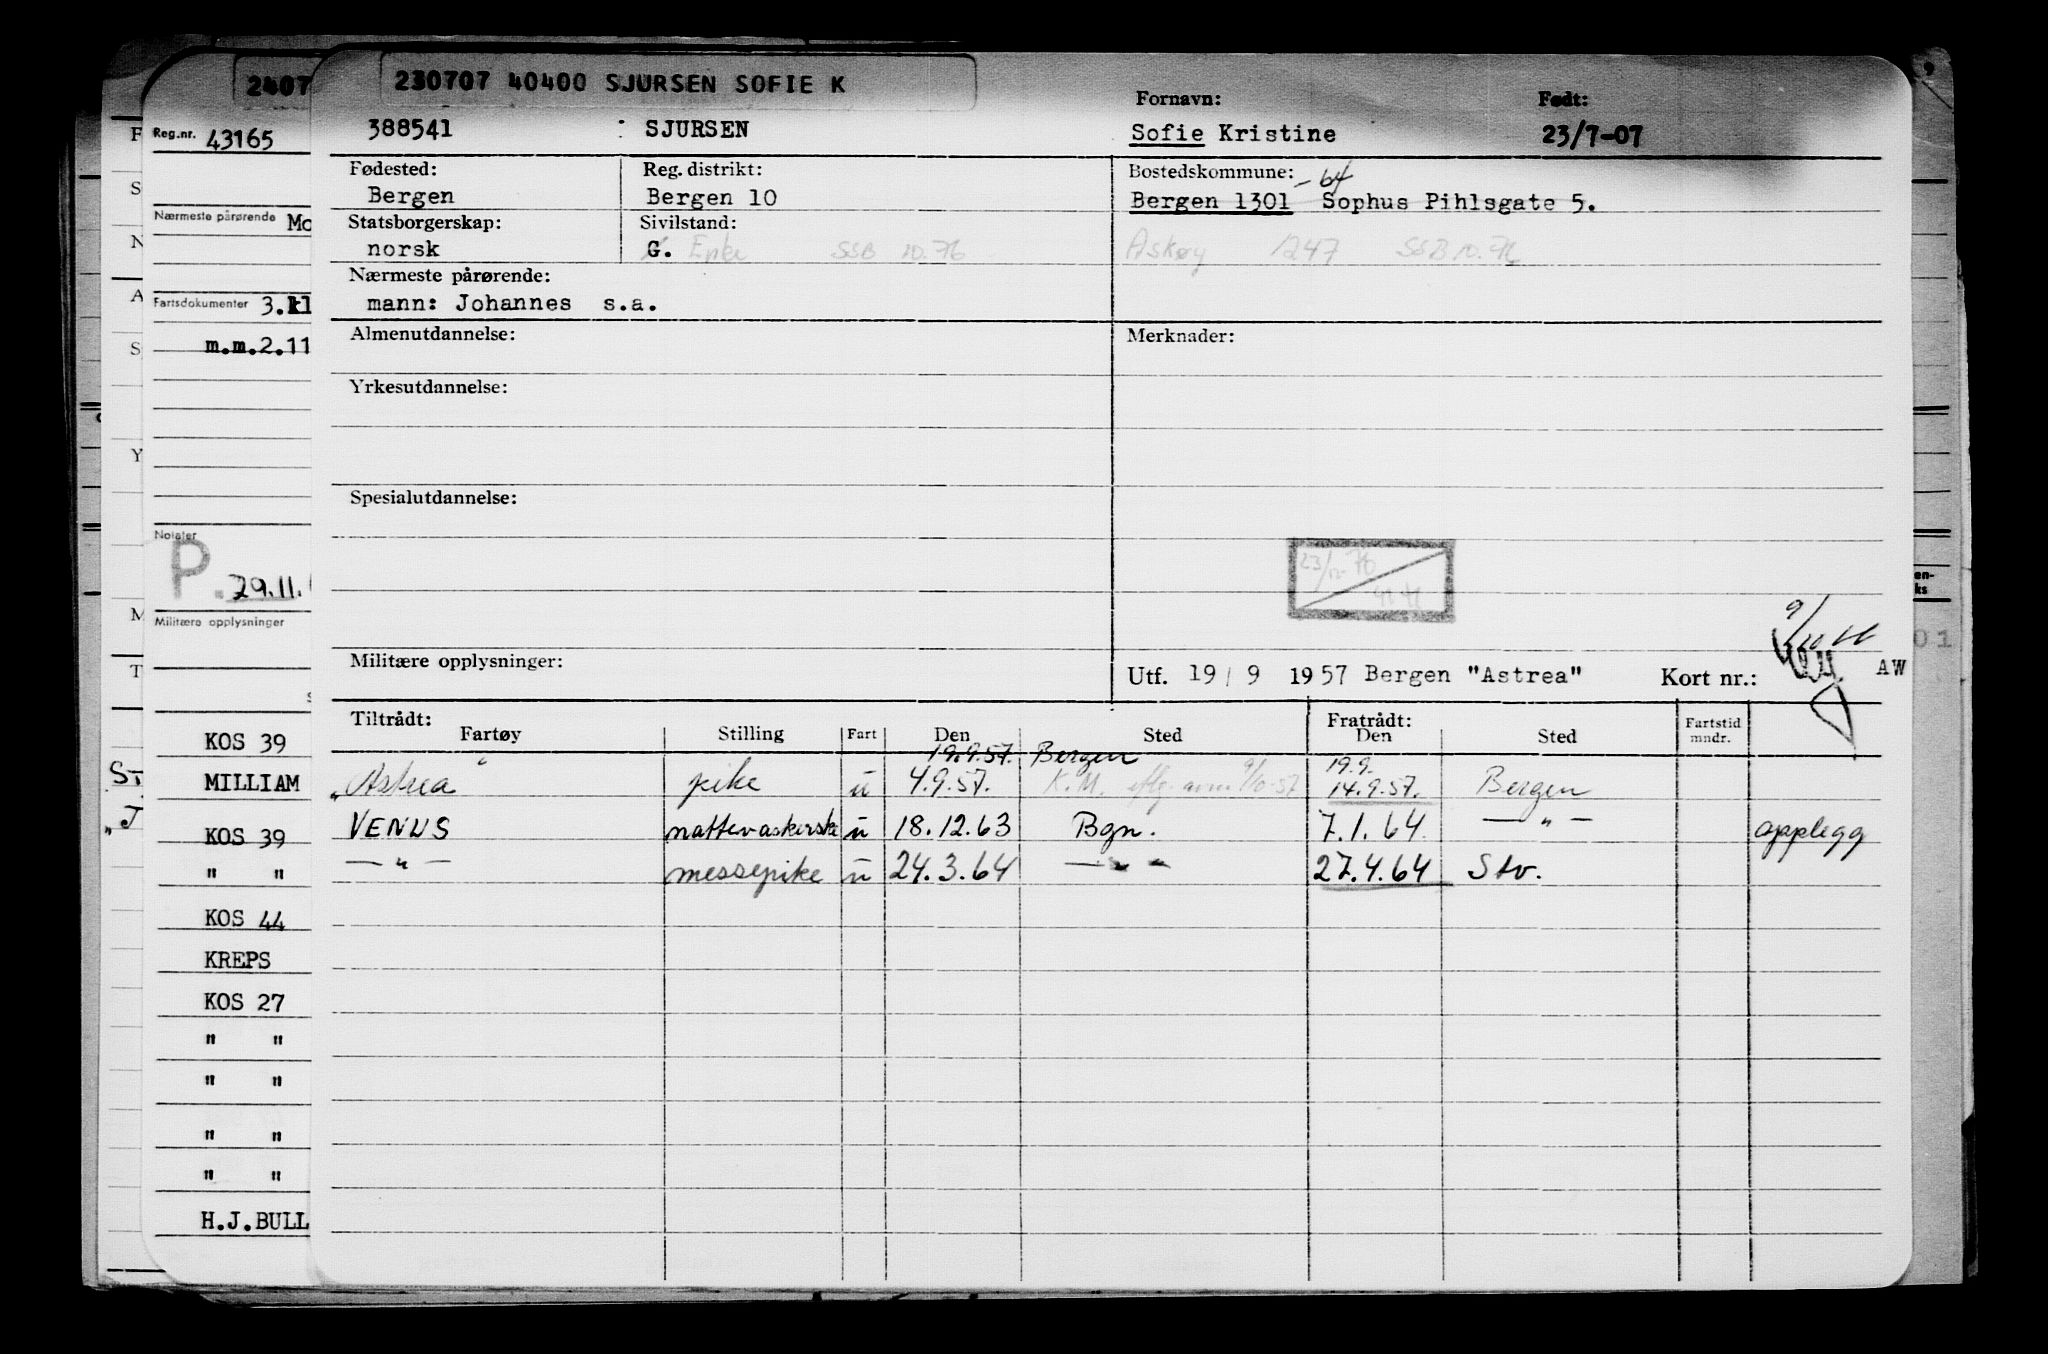 230707 40400 SJURSEN SOFIE K
2407
388541 : SJURSEN
Fornavn: Født:
Sofie Kristine 23/7-07
Fødested: Reg. distrikt: Bostedskommune:
Bergen Bergen 10 Bergen 1301 -64 Sophus Pihlsgate 5.
Statsborgerskap: Sivilstand:
norsk G. Enke SSB 10.76 Askøy 1247 SSB 10.76
Nærmeste pårørende:
mann: Johannes s.a.
Almenutdannelse: Merknader:
Yrkesutdannelse:
Spesialutdannelse:
23/12-76
Militære opplysninger:
Utf. 19/9 1957 Bergen "Astrea" Kort nr.: AW
Tiltrådt: Fratrådt:
Fartøy Stilling Fart Den Sted Den Sted Fartstid mndr.
19.9.57. Bergen 19.9.
"Astrea" pike u 4.9.57. K.M. 9/10-57 14.9.57. Bergen
VENUS nattevaskerske u 18.12.63 Bgn. 7.1.64 — " — opplegg
— " — messepike u 24.3.64 — " — 27.4.64 Stv.
Reg.nr. 43165
Nærmeste pårørende Mo
Fartsdokumenter 3.kl
m.m.2.11
Notater
P. 29.11.
Militære opplysninger
KOS 39
MILLIAM
KOS 39
" "
KOS 44
KREPS
KOS 27
" "
" "
" "
" "
H.J.BULL
F
S
N
A
S
Y
M
T
"J
en-
ks
01